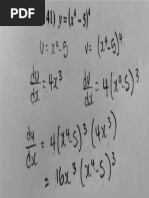 41) y=(x⁴-5)⁴
u=x⁴-5 v=(x⁴-5)⁴
du/dx = 4x³ dv/dx = 4(x⁴-5)³
du/dx = 4(x⁴-5)³(4x³)
= 16x³(x⁴-5)³